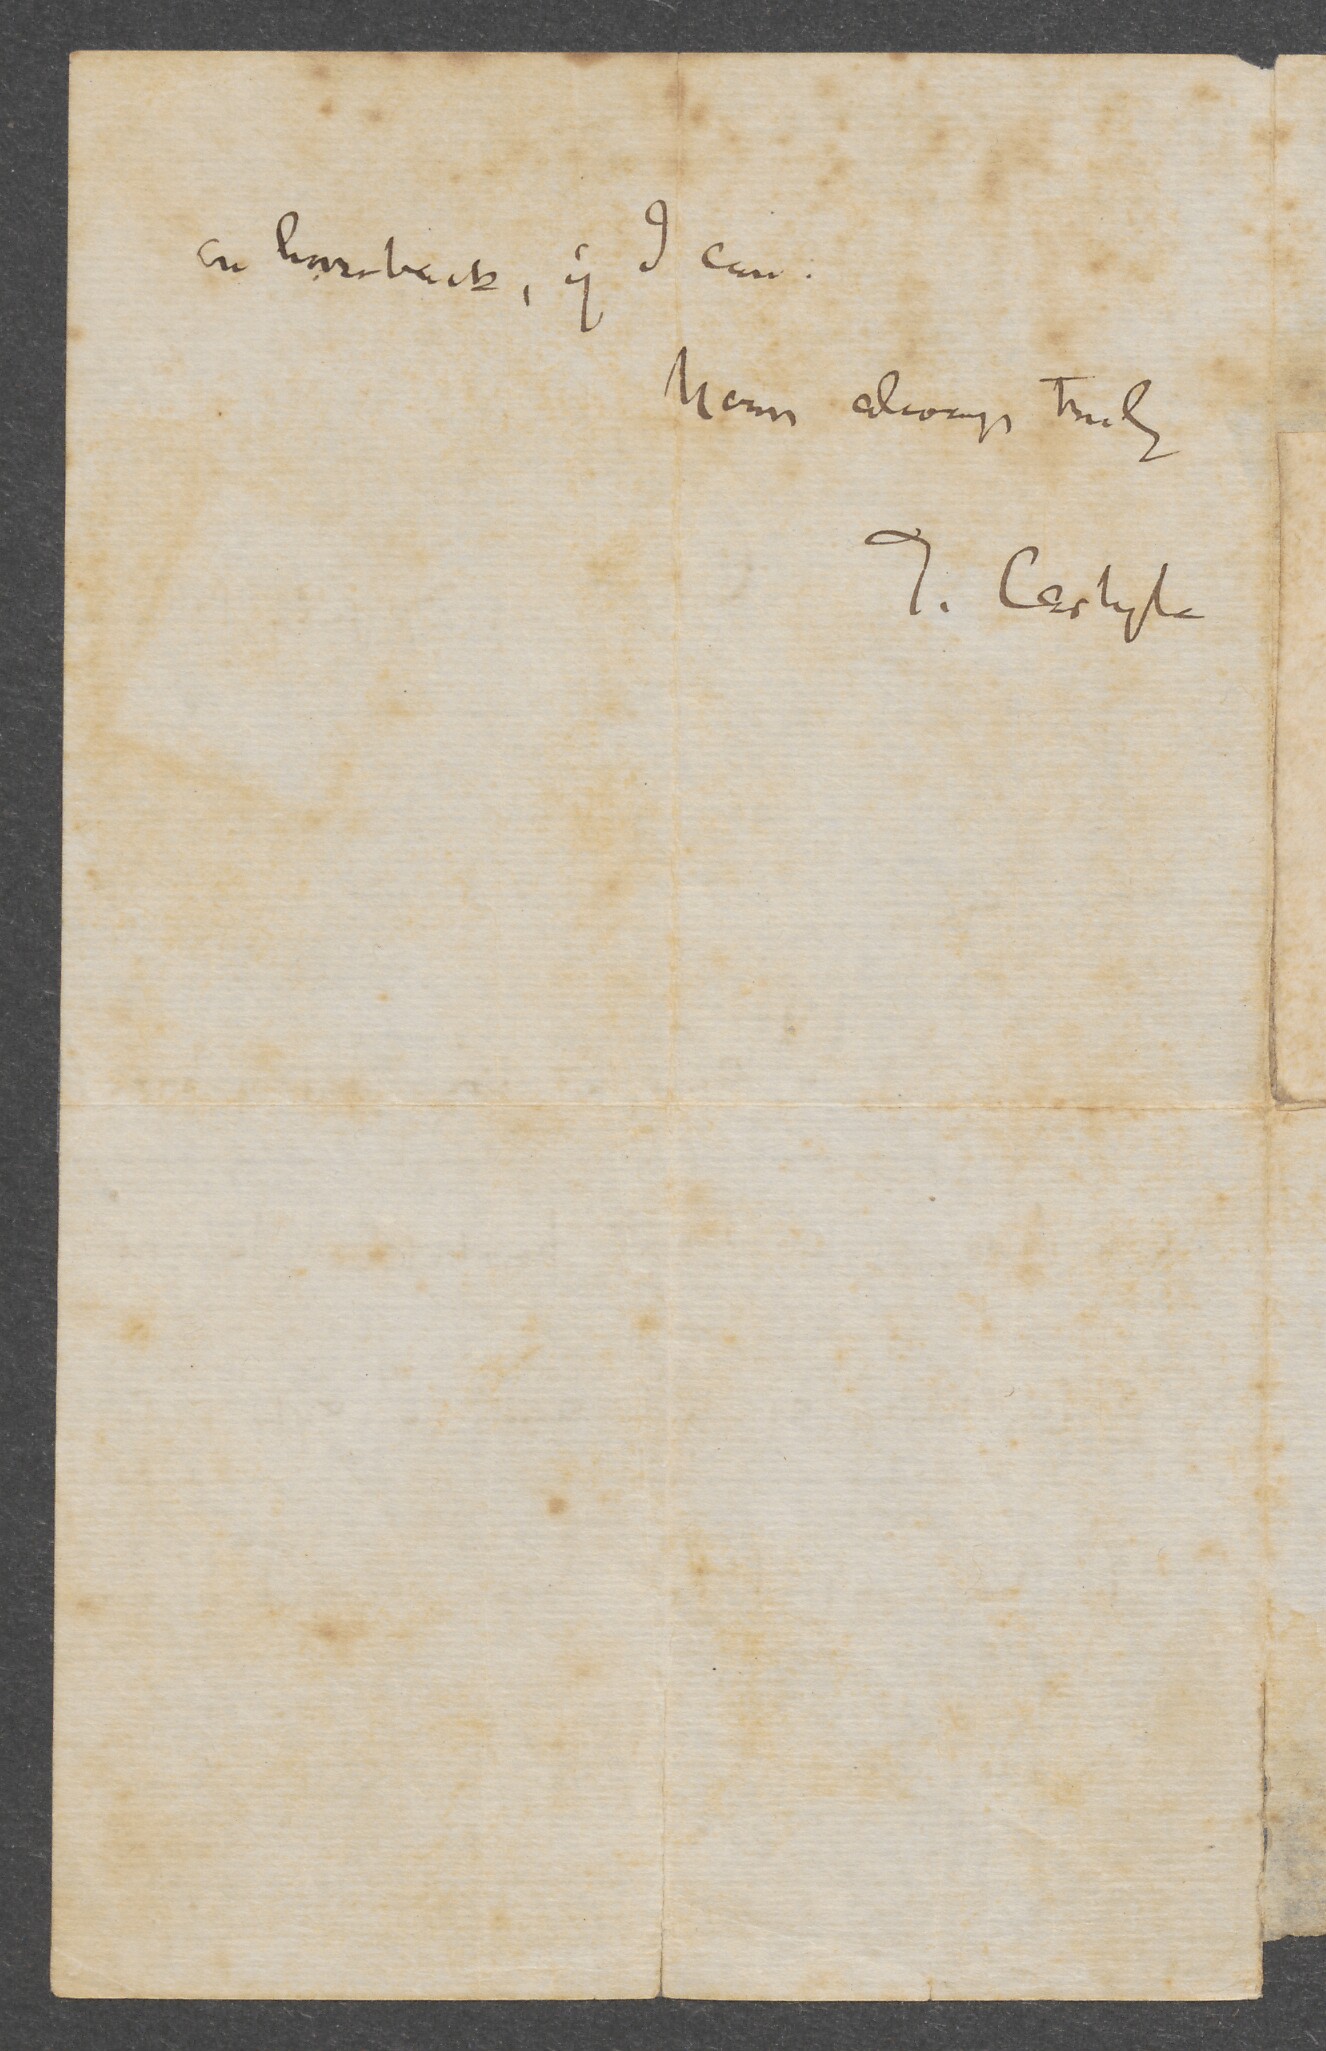 on horseback, if I can.
Yours always truly
T. Carlyle